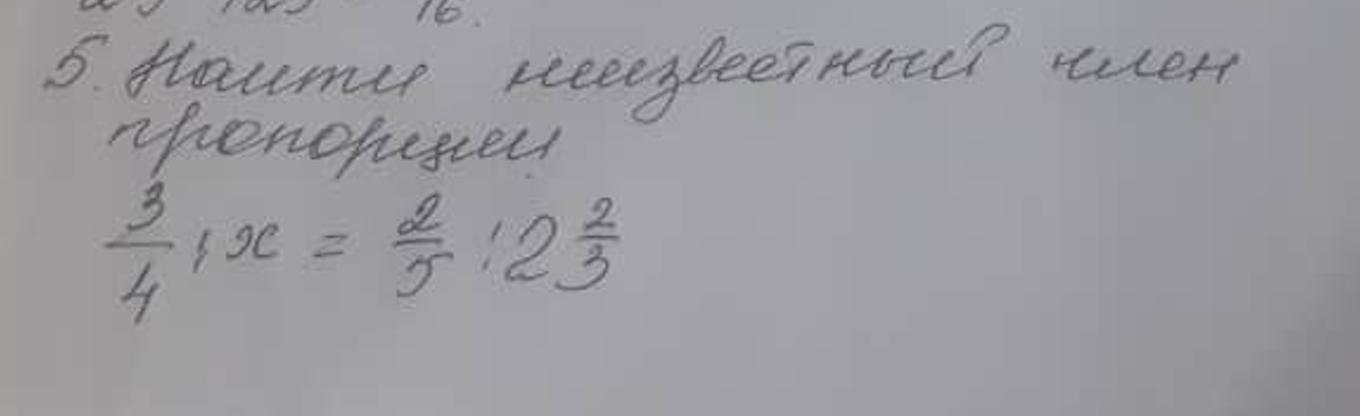 5. Найти неизвестный член
пропорции
3/4 : x = 2/5 : 2 2/3